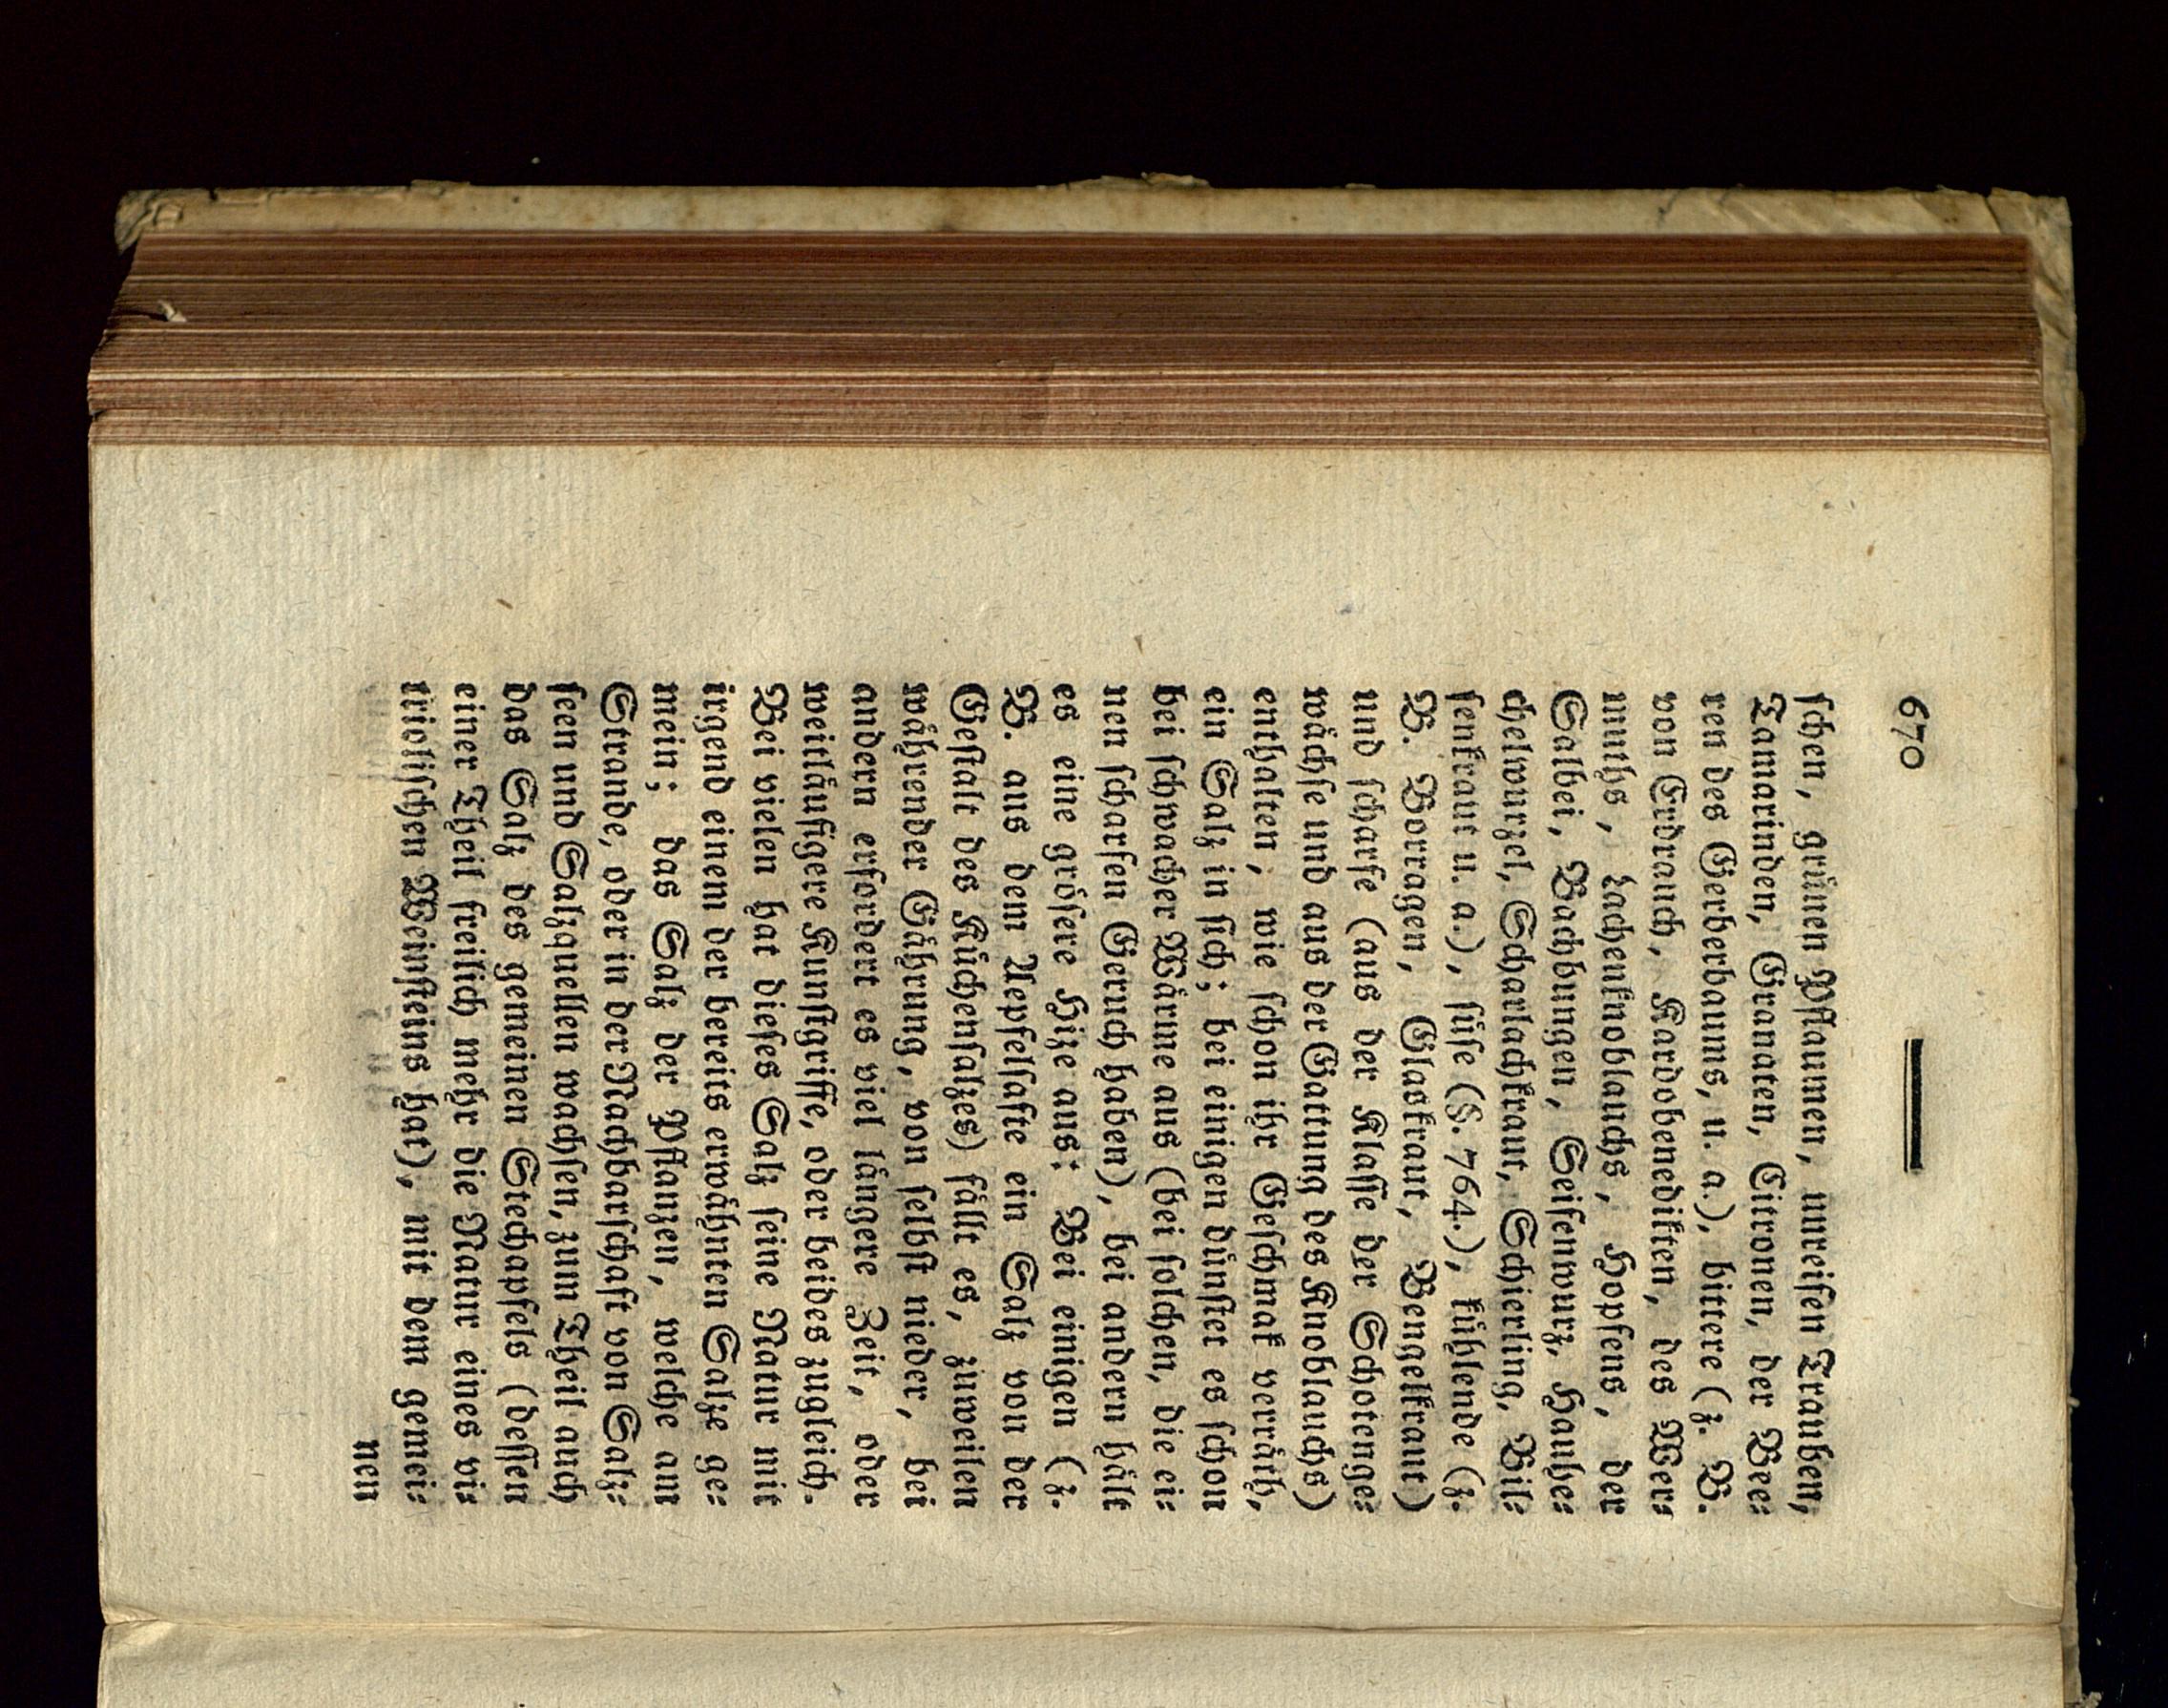 670
ſchen, grünen Pflaumen, unreifen Trauben,
Tamarinden, Granaten, Citronen, der Bee⸗
ren des Gerberbaums, u. a.), bittere (z. B.
von Erdrauch, Kardobenedikten, des Wer⸗
muths, Lachenknoblauchs, Hopfens, der
Salbei, Bachbungen, Seifenwurz, Hauhe⸗
chelwurzel, Scharlachkraut, Schierling, Bil⸗
ſenkraut u. a.), ſüſe (§. 764.), kühlende (z.
B. Borragen, Glaskraut, Bengelkraut)
und ſcharfe (aus der Klaſſe der Schotenge⸗
wächſe und aus der Gattung des Knoblauchs)
enthalten; wie ſchon ihr Geſchmak verräth,
ein Salz in ſich; bei einigen dünſtet es ſchon
bei ſchwacher Wärme aus (bei ſolchen, die ei⸗
nen ſcharfen Geruch haben), bei andern hält
es eine gröſere Hize aus: Bei einigen (z.
B. aus dem Aepfelſafte ein Salz von der
Geſtalt des Küchenſalzes) fällt es, zuweilen
während der Gährung, von ſelbſt nieder, bei
andern erfordert es viel längere Zeit, oder
weitläufigere Kunſtgriffe, oder beides zugleich.
Bei vielen hat dieſes Salz ſeine Natur mit
irgend einem der bereits erwähnten Salze ge⸗
mein; das Salz der Pflanzen, welche am
Strande, oder in der Nachbarſchaft von Salz⸗
ſeen und Salzquellen wachſen, zum Theil auch
das Salz des gemeinen Stechapfels (deſſen
einer Theil freilich mehr die Natur eines vi⸗
trioliſchen Weinſteins hat), mit dem gemei⸗
nen